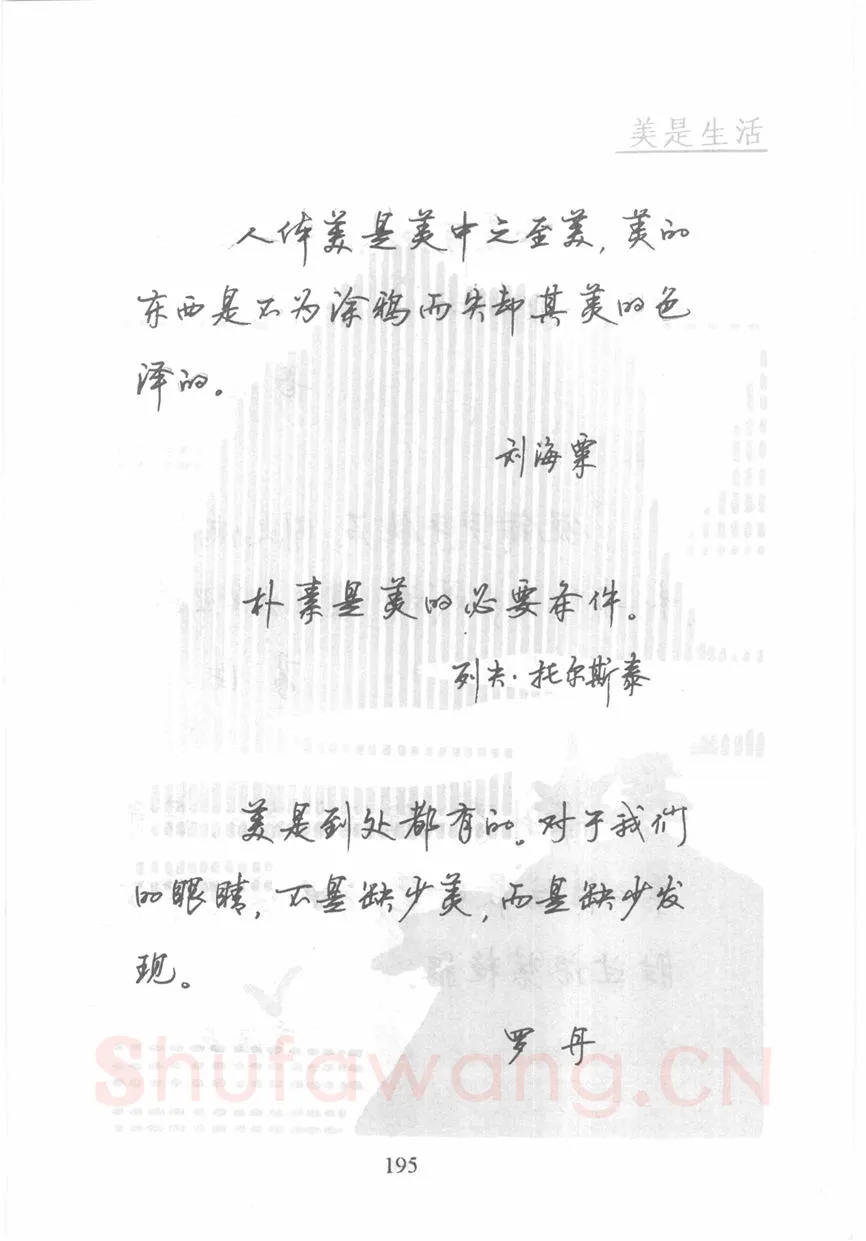 美是生活
人体美是美中之至美,美的
东西是不为涂鸦而失却其美的色
泽的。
刘海粟
朴素是美的必要条件。
列夫·托尔斯泰
美是到处都有的。对于我们
的眼睛,不是缺少美,而是缺少发
现。
罗丹
Shufawang.CN
195